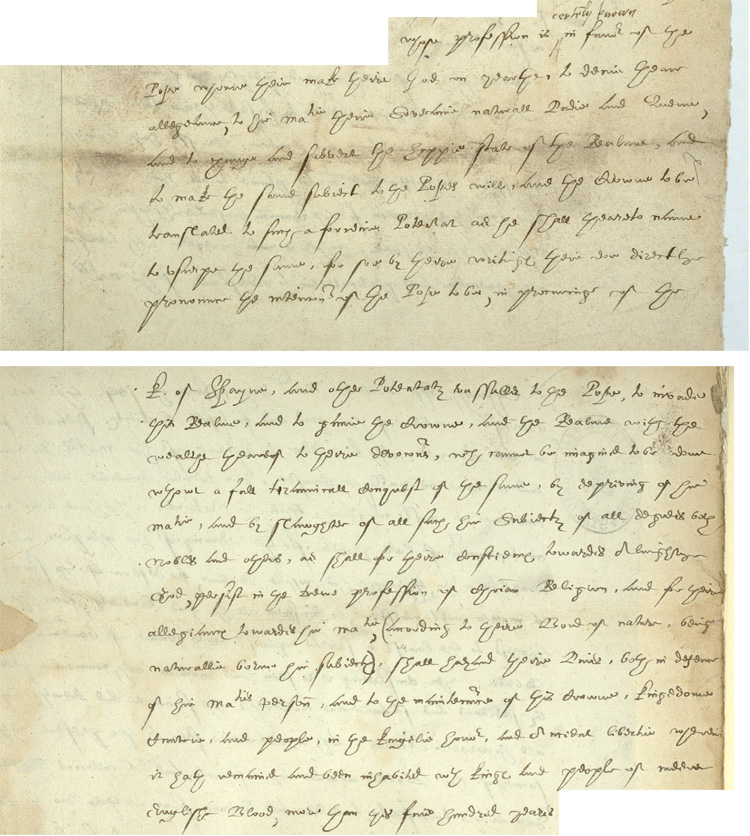 certenly known
whose profession is in favor of the
Pope whome their make theire god in yearthe, to denie theare
allegeiance, to hir matie theire Soveraine naturall Ladie and Quene,
and to change and subvert the happie state of the Realme, and
to make the same subiect to the Popes will, and the Crowne to be
translated to such a forreine Potentat as he shall theareto name
to vsurpe the same, for soe by theire writinges their doe directlie
pronounce the intencion of the Pope to be, in procuringe of the
K. of Spayne, and other Potentates vassalles to the Pope, to invade
this Realme, and to the Crowne, and the Realme with the
wealthe theareof to theire devocions, which cannot be imagined to be done
without a full tirannicall Conquest of the same, by depriving of hir
matie, and by slaughter of all such hir Subiectes of all degrees both
Nobles and others, as shall for theire Consciences towardes Almightye
God, persist in the trewe profession of Christian Religion, and for theire
allegiance towardes hir matie (according to theire Bond of nature, being
naturallie borne hir subiectes), shall hazard theire lives, both in defence
of hir maties person, and to the maintenance of this Crowne, Kingedome
Countrie, and people, in the Kingelie honor, and Ancient libertie wherein
it hath remained and been inhabited with Kinges and people of meere
Englishe Blood, more than this five hundred yeares